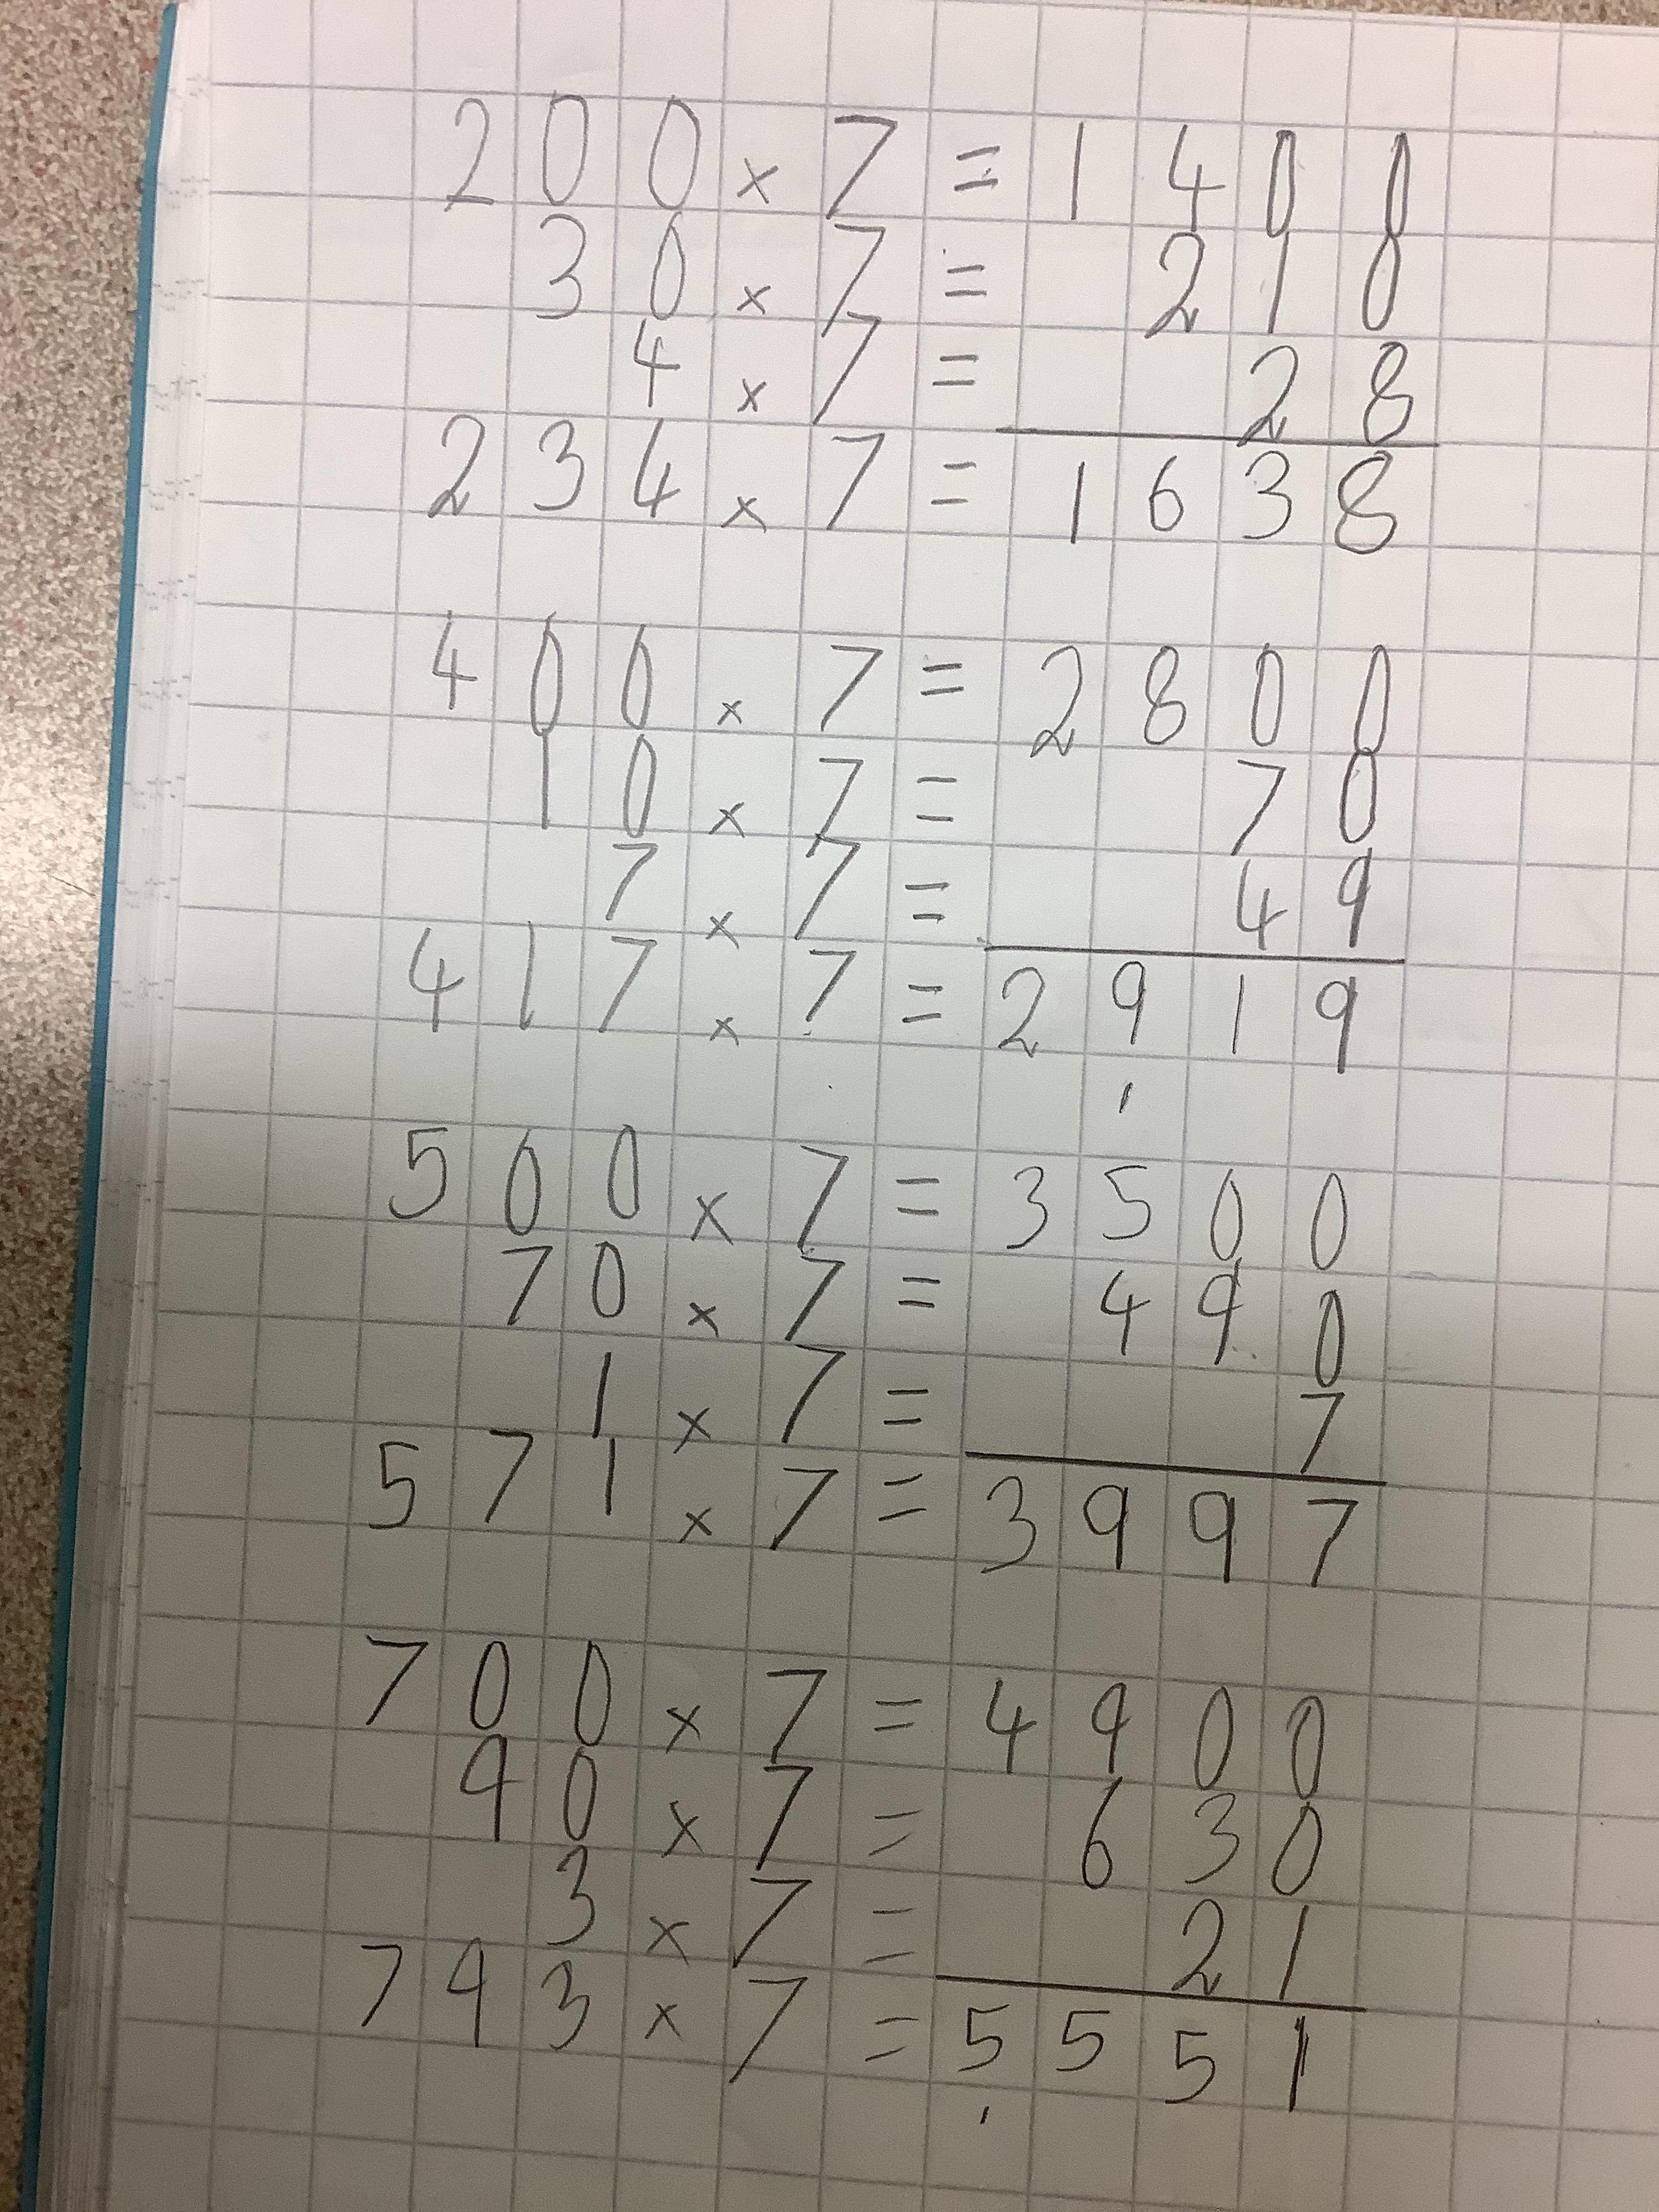 200 × 7 = 1400
30 × 7 = 210
4 × 7 = 28
234 × 7 = 1638
400 × 7 = 2800
10 × 7 = 70
7 × 7 = 49
417 × 7 = 2919
1
500 × 7 = 3500
70 × 7 = 490
1 × 7 = 7
571 × 7 = 3997
700 × 7 = 4900
90 × 7 = 630
3 × 7 = 21
793 × 7 = 5551
1